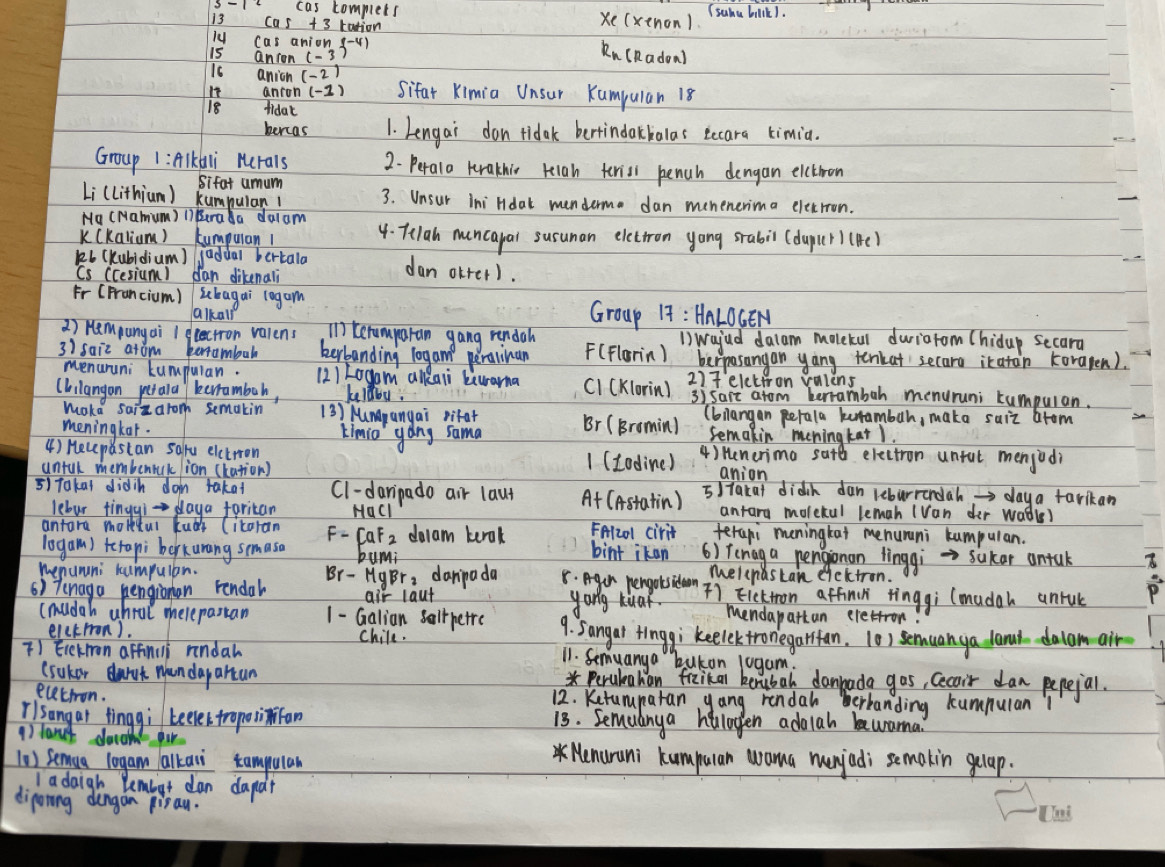 cas kompleks
13 cas +3 kation
14 cas anion (-4)
15 anion (-3)
16 anion (-2)
17 anion (-1)
18 tidak
bercas
(suhu bilik).
Xe (xenon).
Rn (Radon)
Sifat Kimia Unsur Kumpulan 18
1. Lengai dan tidak bertindakbalas secara kimia.
2- Petala terakhir telah terisi penuh dengan elektron
3. Unsur ini tidak menderma dan menenerima elektron.
4. Telah mencapai susunan elektron yang stabil (duplet) (He)
dan oktet).
Group 1 : Alkali Metals
Li (Lithium)
Na (Natrium)
K (Kalium)
Rb (Rubidium)
Cs (Cesium)
Fr (Francium)
Sifat umum
kumpulan 1
1) Berada dalam
kumpulan 1
jadual berkala
dan dikenali
sebagai logam
alkali
2) Mempunyai 1 electron valens
3) Saiz atom bertambah
menuruni kumpulan.
(bilangan petala bertambah,
maka saiz atom semakin
meningkat.
4) Melepaskan satu elektron
untuk membentuk ion (kation)
5) Takat didih dan takat
lebur tinggi → daya tarikan
antara molekul kuat (ikatan
logam) tetapi berkurang semasa
menuruni kumpulan.
6) Tenaga pengionan rendah
(mudah untuk melepaskan
elektron).
7) Elektron affiniti rendah
(sukar untuk mendapatkan
elektron.
8) Sangat tinggi keelektropositifan
9) larut dalam air
10) Semua logam alkali kumpulan
1 adalah lembut dan dapat
dipotong dengan pisau.
11) Ketumpatan yang rendah
berbanding logam peralihan
12) Logam alkali berwarna
kelabu.
13) Mempunyai sifat
kimia yang sama
Cl - daripada air laut
NaCl
F - CaF2 dalam kerak
bumi
Br - MgBr2 daripada
air laut
I - Galian Saltpetre
Chile.
Group 17 : HALOGEN
F (Florin)
Cl (Klorin)
Br (Bromin)
I (Iodine)
At (Astatin)
FAizol cirit
bint ikan
1) Wujud dalam molekul dwiatom (hidup secara
berpasangan yang terikat secara ikatan kovalen).
2) 7 elektron valens
3) Saiz atom bertambah menuruni kumpulan.
(bilangan petala bertambah, maka saiz atom
semakin meningkat).
4) Menerima satu elektron untuk menjadi
anion
5) Takat didih dan lebur rendah → daya tarikan
antara molekul lemah (Van der Waals)
tetapi meningkat menuruni kumpulan.
6) Tenaga pengionan tinggi → sukar untuk
melepaskan elektron.
7) Elektron affiniti tinggi (mudah untuk
mendapatkan elektron.
8. Agen pengoksidaan
yang kuat.
9. Sangat tinggi keelektronegatifan. 10) semuanya larut dalam air
11. Semuanya bukan logam.
* Perubahan fizikal berubah daripada gas, Cecair dan pepejal.
12. Ketumpatan yang rendah berbanding kumpulan 1
13. Semuanya halogen adalah bewarna.
* Menuruni kumpulan warna menjadi semakin gelap.
Uni